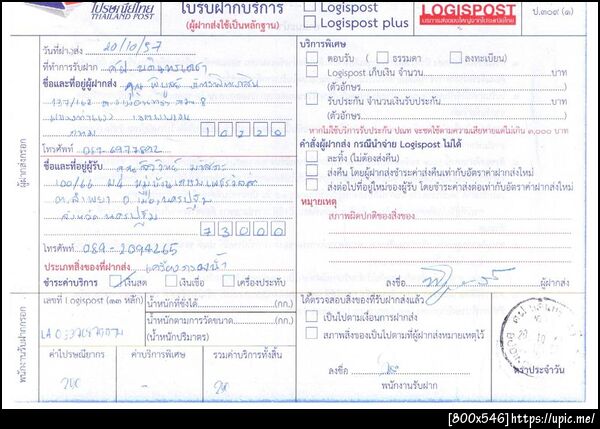 ไปรษณีย์ไทย
THAILAND POST
ใบรับฝากบริการ
(ผู้ฝากส่งใช้เป็นหลักฐาน)
Logispost
Logispost plus
LOGISPOST
ป.๓๐๙ (๑)
วันที่ฝากส่ง 20/10/57
ที่ทำการรับฝาก
ชื่อและที่อยู่ผู้ฝากส่ง คุณ พิบูลย์
137/162
10220
โทรศัพท์ 087-6977892
ชื่อและที่อยู่ผู้รับ
100/66 ม.4 หมู่บ้าน
ต.ลำพยา อ.เมืองนครปฐม
จังหวัดนครปฐม
73000
โทรศัพท์ 089-2094265
ประเภทสิ่งของที่ฝากส่ง เครื่องกรองน้ำ
ชำระค่าบริการ เงินสด เงินเชื่อ เครื่องประทับ
ผู้ฝากส่งกรอก
บริการพิเศษ
ตอบรับ ( ธรรมดา ลงทะเบียน)
Logispost เก็บเงิน จำนวน บาท
(ตัวอักษร )
รับประกัน จำนวนเงินรับประกัน บาท
(ตัวอักษร )
หากไม่ใช้บริการรับประกัน ปณท จะชดใช้ตามความเสียหายแต่ไม่เกิน ๓,๐๐๐ บาท
คำสั่งผู้ฝากส่ง กรณีนำจ่าย Logispost ไม่ได้
ละทิ้ง (ไม่ต้องส่งคืน)
ส่งคืน โดยผู้ฝากส่งชำระค่าส่งคืนเท่ากับอัตราค่าฝากส่งใหม่
ส่งต่อไปที่อยู่ใหม่ของผู้รับ โดยชำระค่าส่งต่อเท่ากับอัตราค่าฝากส่งใหม่
หมายเหตุ
สภาพผิดปกติของสิ่งของ
ลงชื่อ ผู้ฝากส่ง
เลขที่ Logispost (๓๓ หลัก)
น้ำหนักที่ชั่งได้ (กก.)
น้ำหนักตามการวัดขนาด (กก.)
(น้ำหนักปริมาตร)
ค่าไปรษณียากร
ค่าบริการพิเศษ
รวมค่าบริการทั้งสิ้น
พนักงานรับฝากกรอก
ได้ตรวจสอบสิ่งของที่รับฝากส่งแล้ว
เป็นไปตามเงื่อนการฝากส่ง
สภาพสิ่งของเป็นไปตามที่ผู้ฝากส่งหมายเหตุไว้
ลงชื่อ
พนักงานรับฝาก
ตราประจำวัน
[800x546]https://upic.me/